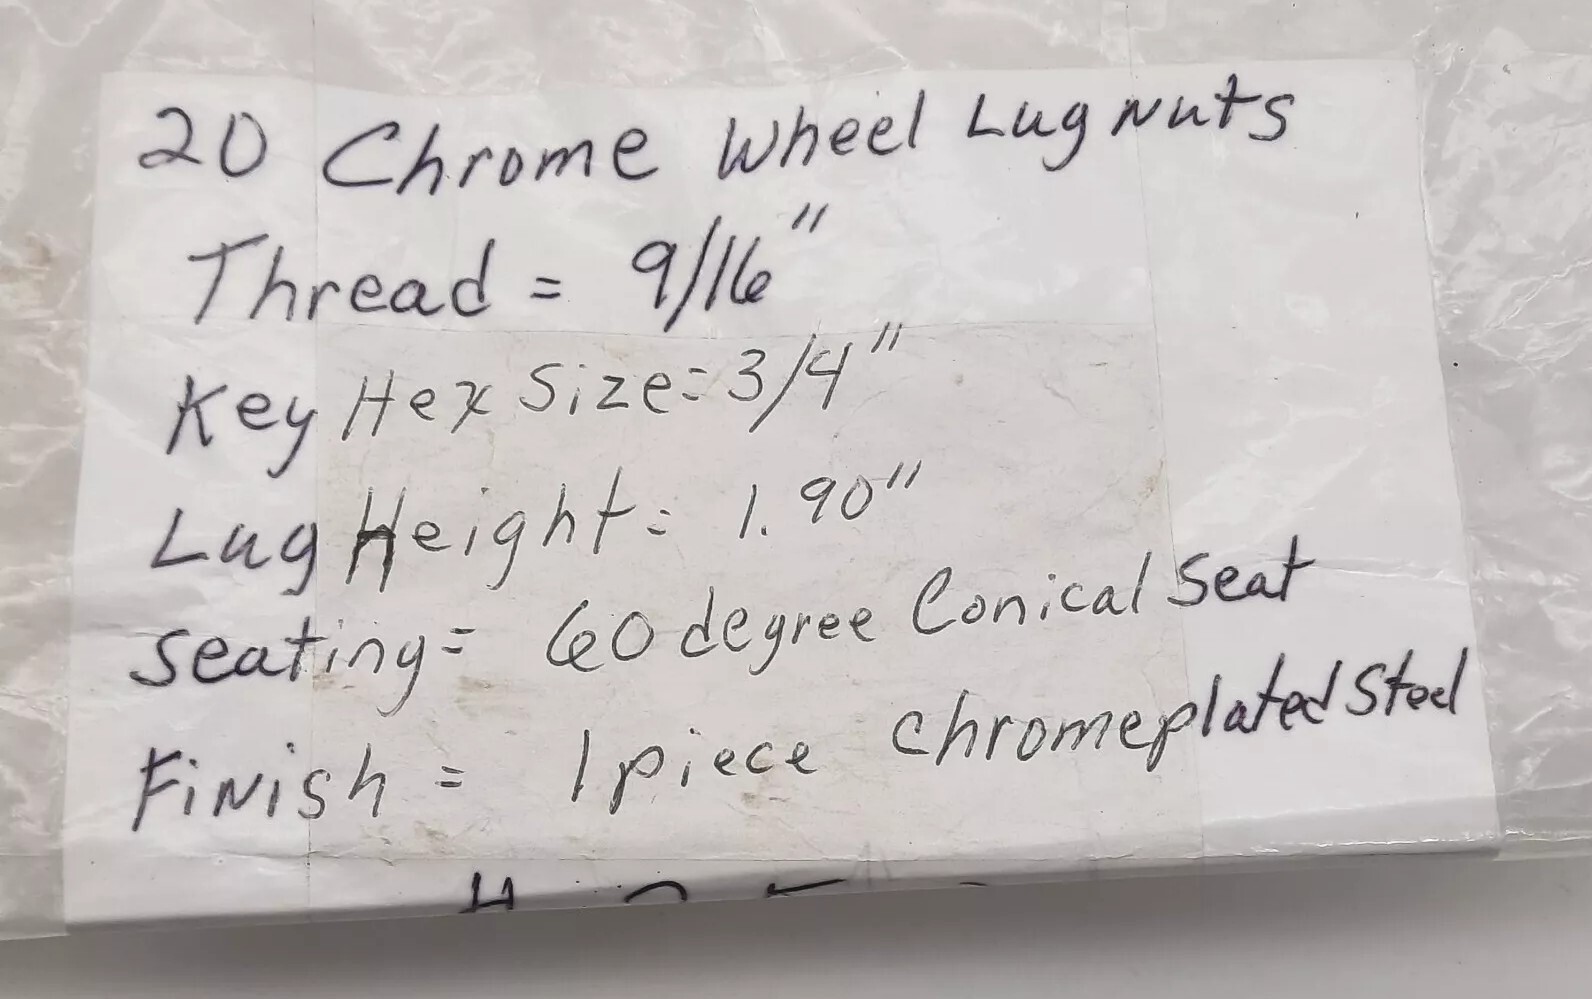 20 Chrome Wheel Lug Nuts
Thread = 9/16"
Key Hex Size = 3/4"
Lug Height = 1.90"
Seating = 60 degree Conical Seat
Finish = 1 piece chromeplated Steel